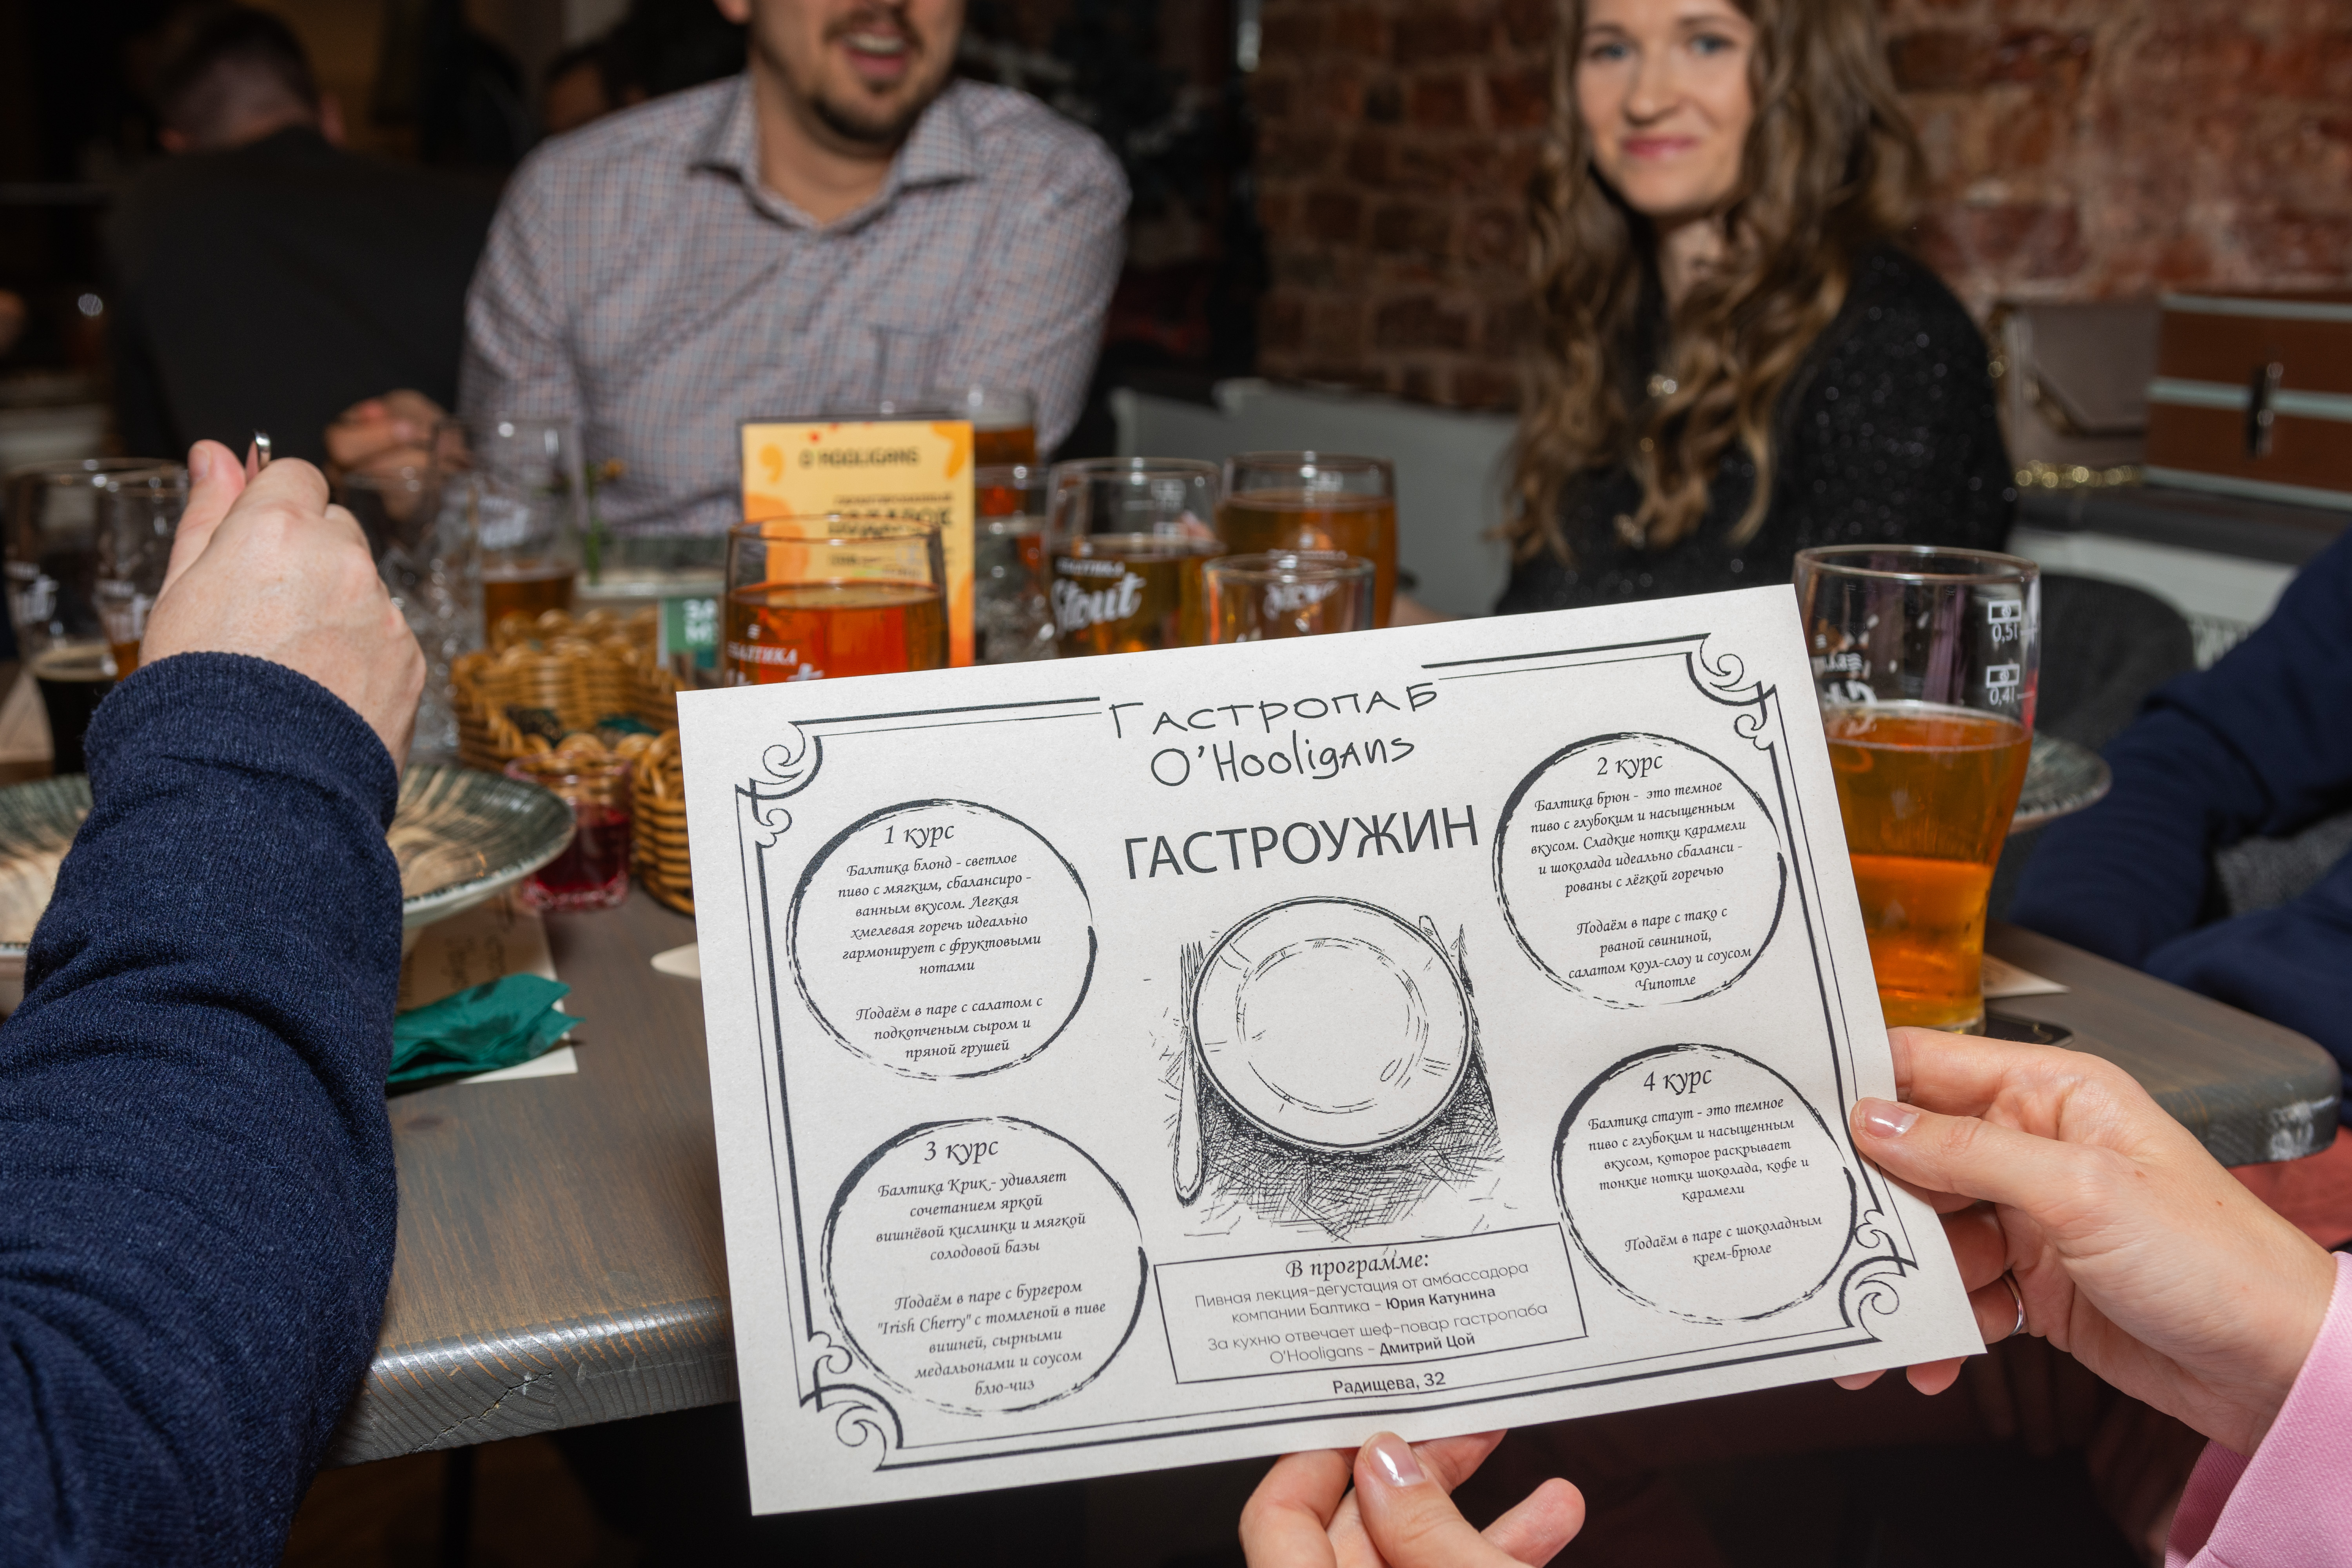 O HOOLIGANS
БАЛТИКА
Stout
БАЛТИКА
0,5l
0,4l
Гастропаб
O'Hooligans
ГАСТРОУЖИН
1 курс
Балтика блонд - светлое
пиво с мягким, сбалансиро -
ванным вкусом. Легкая
хмелевая горечь идеально
гармонирует с фруктовыми
нотами
Подаём в паре с салатом с
подкопченым сыром и
пряной грушей
2 курс
Балтика брюн - это темное
пиво с глубоким и насыщенным
вкусом. Сладкие нотки карамели
и шоколада идеально сбаланси -
рованы с лёгкой горечью
Подаём в паре с тако с
рваной свининой,
салатом коул-слоу и соусом
Чипотле
3 курс
Балтика Крик - удивляет
сочетанием яркой
вишнёвой кислинки и мягкой
солодовой базы
Подаём в паре с бургером
"Irish Cherry" с томленой в пиве
вишней, сырными
медальонами и соусом
блю-чиз
4 курс
Балтика стаут - это темное
пиво с глубоким и насыщенным
вкусом, которое раскрывает
тонкие нотки шоколада, кофе и
карамели
Подаём в паре с шоколадным
крем-брюле
В программе:
Пивная лекция-дегустация от амбассадора
компании Балтика – Юрия Катунина
За кухню отвечает шеф-повар гастропаба
O'Hooligans – Дмитрий Цой
Радищева, 32